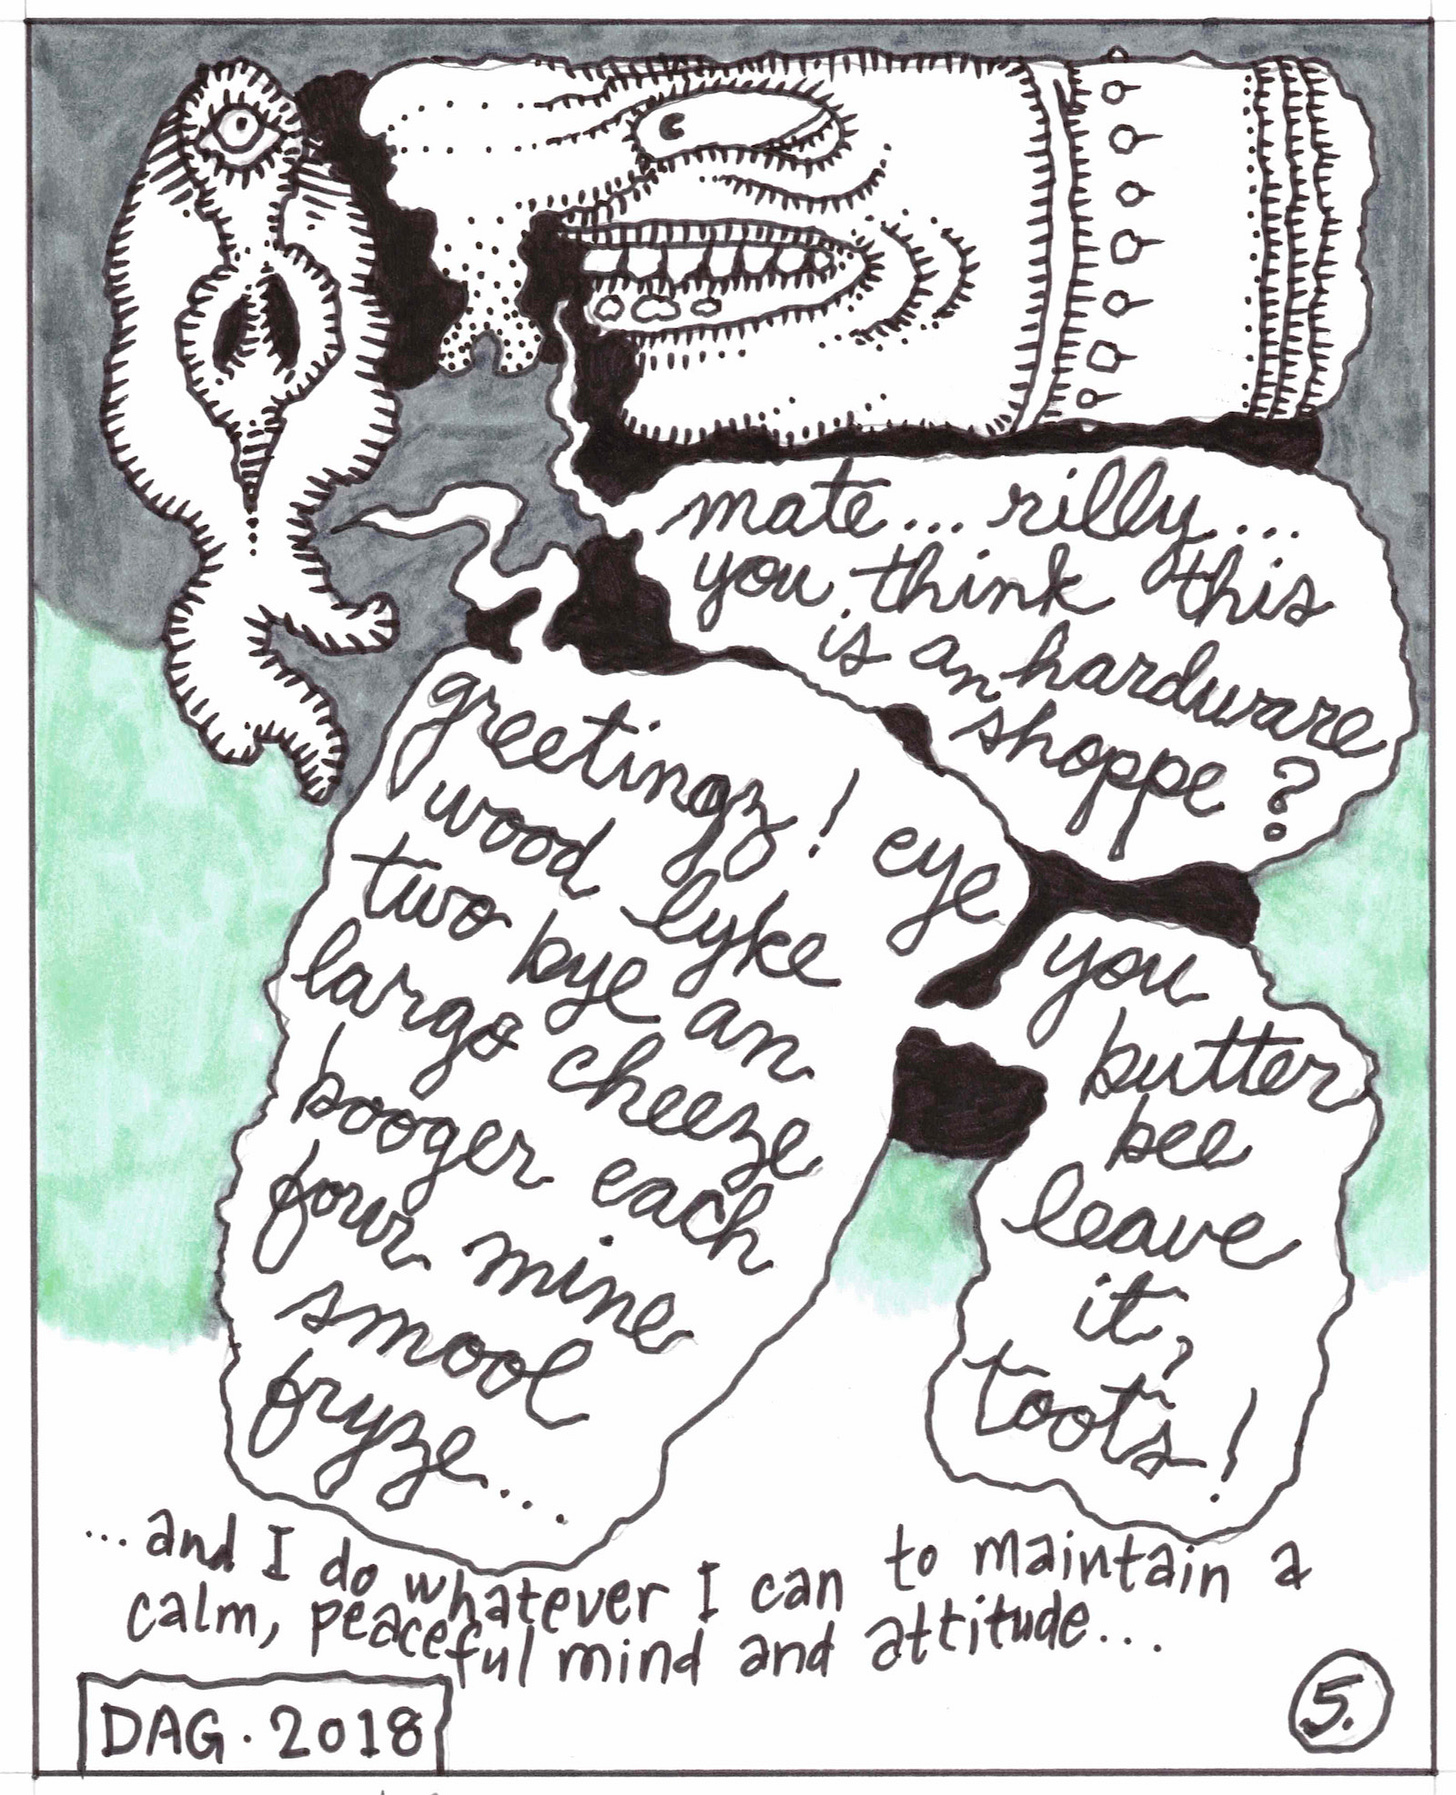 mate... rilly...
you think this
is an hardware
shoppe?
greetingz! eye
wood lyke
two bye an
largo cheeze
booger each
four mine
smool
fryze...
you
butter
bee
leave
it,
toots!
...and I do whatever I can to maintain a
calm, peaceful mind and attitude...
DAG. 2018
5.